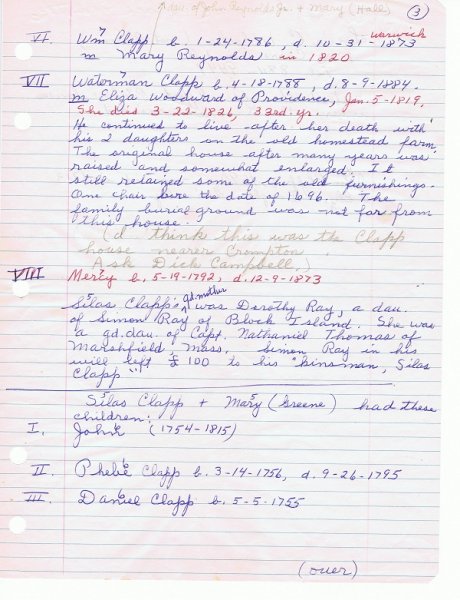 dau. of John Reynolds Jr. + Mary (Hall)
3
VI. Wm 7 Clapp b. 1-24-1786, d. 10-31-1873 Warwick
m Mary Reynolds in 1820
VII Waterman 7 Clapp b, 4-18-1788, d, 8-9-1884.
m Eliza Woodward of Providence, Jan. 5-1819.
She died 3-22-1826, 33rd. yr.
He continued to live after her death with
his 2 daughters on the old homestead farm.
The original house after many years was
raised and somewhat enlarged. It
still retained some of the old furnishings.
One chair bore the date of 1696. The
family burial ground was not far from
this house.
(I think this was the Clapp
house nearer Crompton.
Ask Dick Campbell.)
VIII Mercy b, 5-19-1792, d, 12-9-1873
Silas Clapp's gd. mother was Dorothy Ray, a dau.
of Simon Ray of Block Island. She was
a gd. dau. of Capt. Nathaniel Thomas of
Marshfield, Mass. Simon Ray in his
will left £ 100 to his "kinsman, Silas
Clapp"
Silas 5 Clapp + Mary 5 (Greene) had these
children:
I. John 6 (1754-1815)
II. Phebe 6 Clapp b. 3-14-1756, d. 9-26-1795
III. Daniel 6 Clapp b. 5-5-1755
(over)